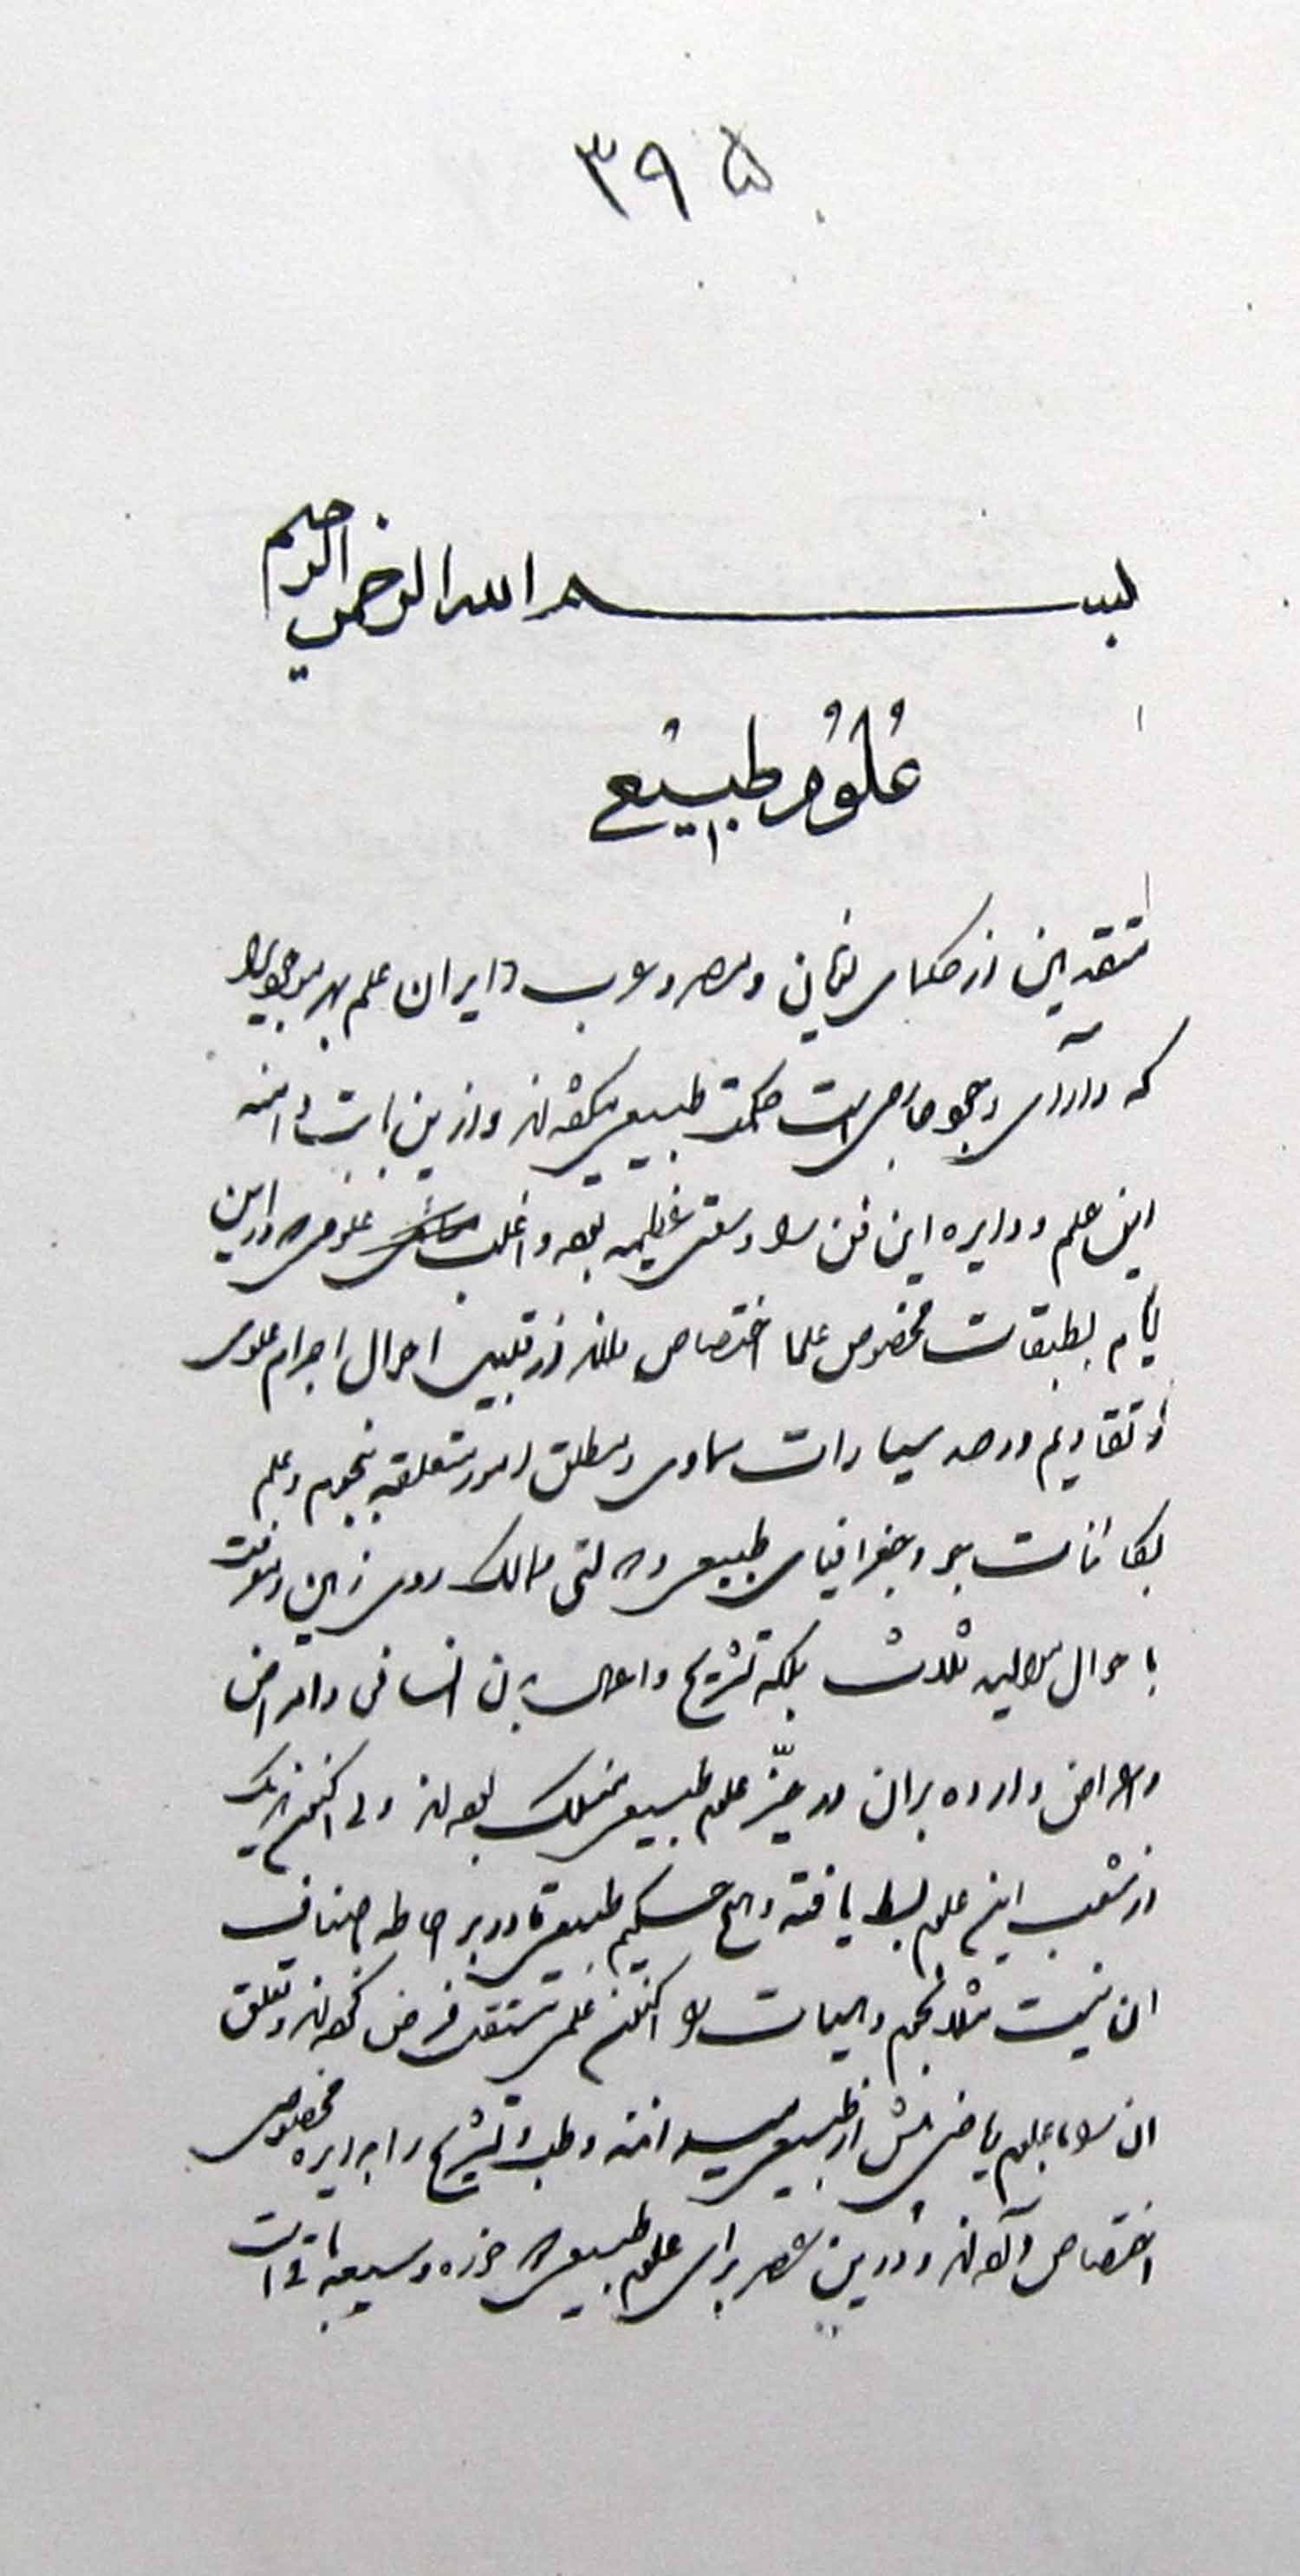 ۳۹۵
بسم الله الرحمن الرحیم
علوم طبیعی
متقدمین از حکمای یونان و مصر و عرب و ایران علم بهر موجودی را
که دارای وجود خارجی است حکمت طبیعی میگفته‌اند و ازین بابت دامنه
این علم و دایره این فن را وسعتی عظیم بوده و اغلب علومی که در این
ایام بطبقات مخصوص علما اختصاص دارند از قبیل احوال اجرام علوی
و تقاویم و رصد سیارات سماوی و مطلق امور متعلقه بنجوم و علم
بکائنات جو و جغرافیای طبیعی و ممالک روی زمین و معرفت
باحوال موالید ثلاث بلکه تشریح و اعمال بدن انسانی و امراض
و اعراض وارده بر آن در حیز علوم طبیعی منسلک بوده‌اند ولی اکنون هر یک
از شعب این علوم بسط یافته و هیچ حکیم طبیعی قادر بر احاطه اصناف
آن نیست مثلا نجوم و هیأت را اکنون علمی مستقل فرض نموده‌اند و تعلق
آن را با علوم ریاضی بیش از طبیعی میدانند و طب و تشریح را بدایره مخصوصی
اختصاص داده‌اند و درین عصر برای علوم طبیعی که حوزه وسیعه باقی است